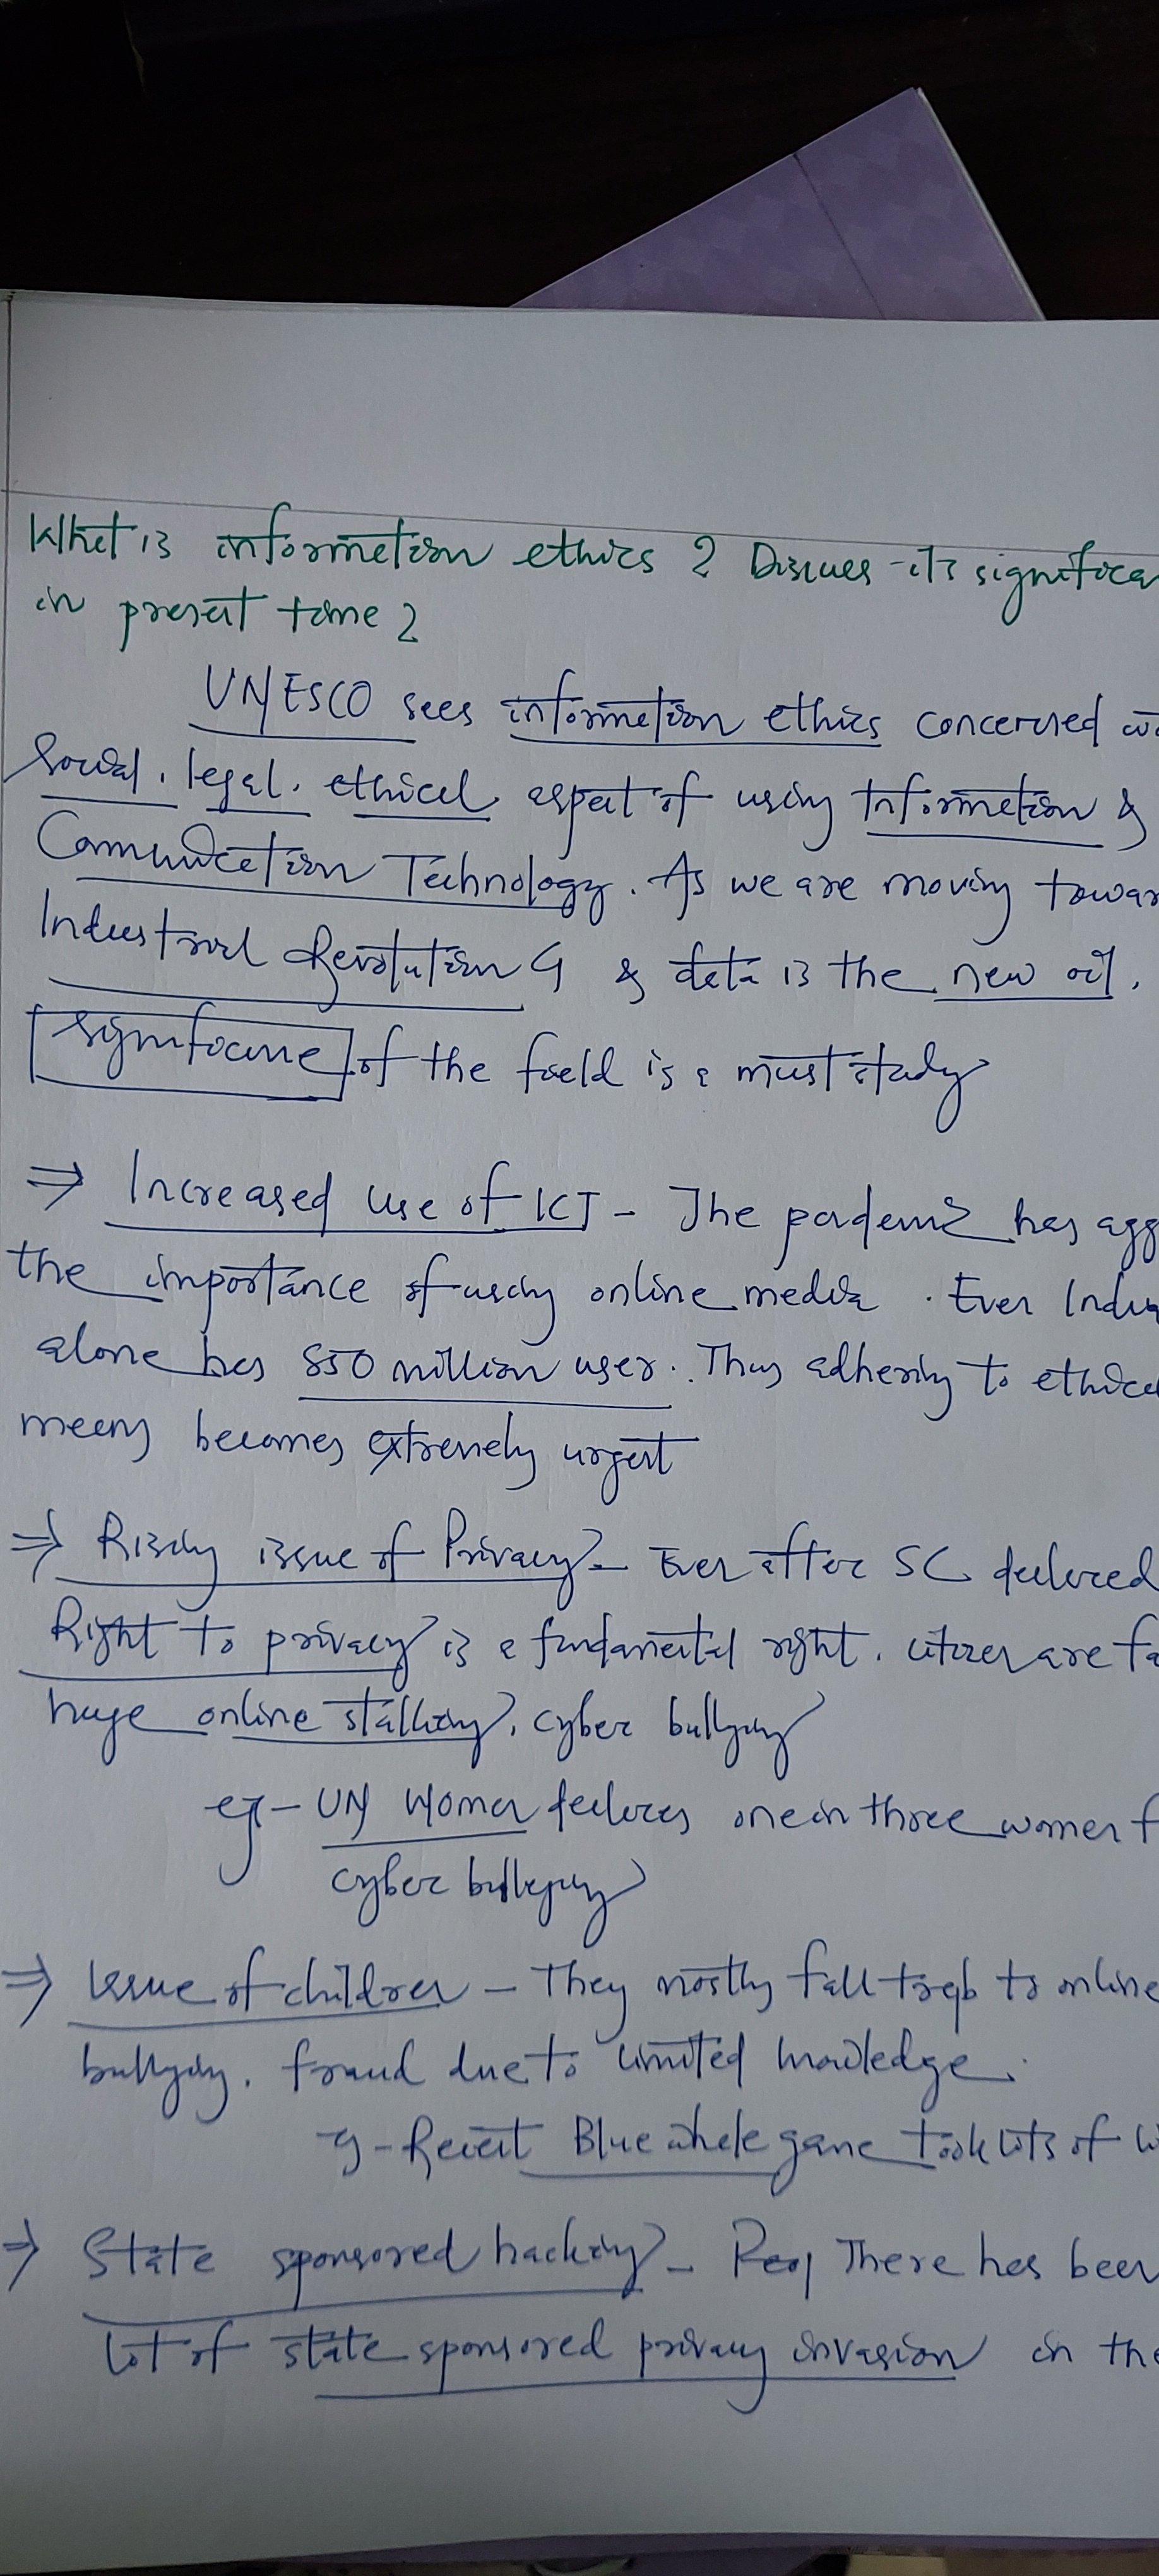 What is information ethics ? Discuss its significa
in present time ?
UNESCO sees information ethics concerned w
Social, legal, ethical aspect of using Information &
Communication Technology. As we are moving towar
Industrial Revolution 4 & data is the new oil,
significance of the field is a must study
⇒ Increased use of ICT - The pandemic has agg
the importance of using online media. Even India
alone has 850 million user. Thus adhering to ethica
means becomes extremely urgent
⇒ Rising issue of Privacy - Even after SC declared
Right to privacy is a fundamental right, citizen are fa
huge online stalking, cyber bullying
eg - UN Women declares one in three women f
cyber bullying
⇒ Issue of children - They mostly fall trap to online
bullying, fraud due to limited knowledge.
eg - Recent Blue whale game took lots of li
⇒ State sponsored hacking - There has been
lot of state sponsored privacy invasion in the